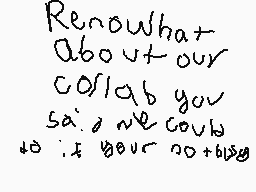 Renowhat
about our
collab you
said we could
do if your not busy